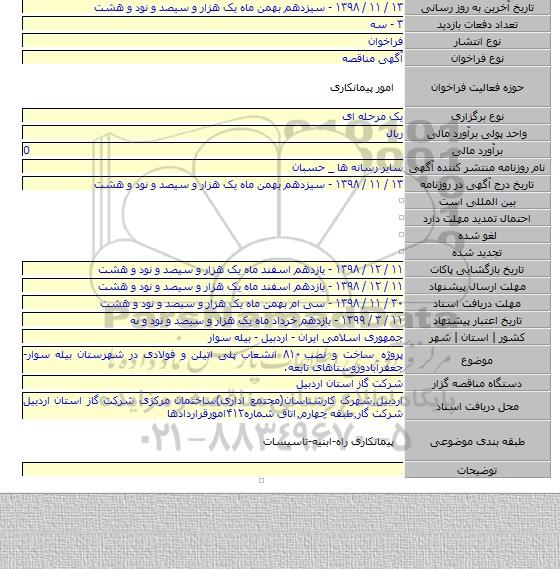 تاریخ آخرین به روز رسانی ۱۳ / ۱۱ / ۱۳۹۸ - سیزدهم بهمن ماه یک هزار و سیصد و نود و هشت
تعداد دفعات بازدید ۳ - سه
نوع انتشار فراخوان
نوع فراخوان آگهی مناقصه
حوزه فعالیت فراخوان امور پیمانکاری
نوع برگزاری یک مرحله ای
واحد پولی برآورد مالی ریال
برآورد مالی 0
نام روزنامه منتشر کننده آگهی سایر رسانه ها _ حسبان
تاریخ درج آگهی در روزنامه ۱۳ / ۱۱ / ۱۳۹۸ - سیزدهم بهمن ماه یک هزار و سیصد و نود و هشت
بین المللی است
احتمال تمدید مهلت دارد
لغو شده
تجدید شده
تاریخ بازگشایی پاکات ۱۱ / ۱۲ / ۱۳۹۸ - یازدهم اسفند ماه یک هزار و سیصد و نود و هشت
مهلت ارسال پیشنهاد ۱۱ / ۱۲ / ۱۳۹۸ - یازدهم اسفند ماه یک هزار و سیصد و نود و هشت
مهلت دریافت اسناد ۳۰ / ۱۱ / ۱۳۹۸ - سی ام بهمن ماه یک هزار و سیصد و نود و هشت
تاریخ اعتبار پیشنهاد ۱۱ / ۳ / ۱۳۹۹ - یازدهم خرداد ماه یک هزار و سیصد و نود و نه
کشور | استان | شهر جمهوری اسلامی ایران - اردبیل - بیله سوار
موضوع پروژه ساخت و نصب ۸۱۰ انشعاب پلی اتیلن و فولادی در شهرستان بیله سوار-
جعفرآبادوروستاهای تابعه.
دستگاه مناقصه گزار شرکت گاز استان اردبیل
محل دریافت اسناد اردبیل,شهرک کارشناسان(مجتمع اداری)ساختمان مرکزی شرکت گاز استان اردبیل
شرکت گاز,طبقه چهارم,اتاق شماره۴۱۲امورقراردادها
طبقه بندی موضوعی پیمانکاری راه-ابنیه-تاسیسات
توضیحات
۰۲۱-۸۸۳۴۹۶۷۰-۵